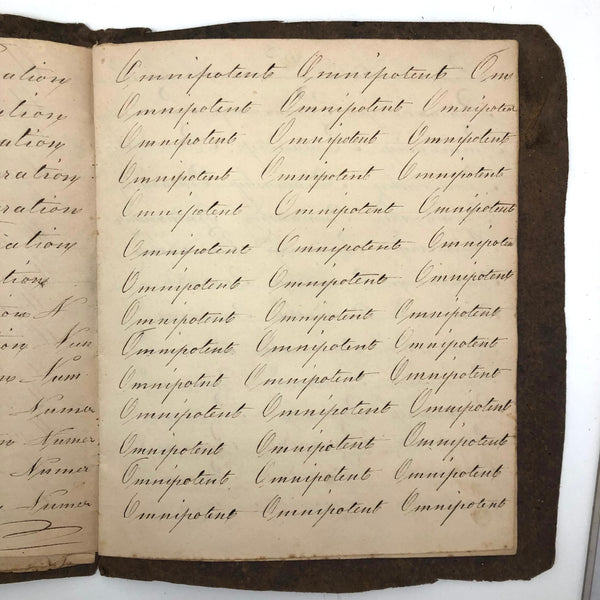 ration
ration
ration
eration
eration
ration
ration
ion N
ion Num
n Num
Numer
n Numer
Numer
Numer
Omnipotent Omnipotent Om
Omnipotent Omnipotent Omnipoten
Omnipotent Omnipotent Omnipotent
Omnipotent Omnipotent Omnipotent
Omnipotent Omnipotent Omnipotent
Omnipotent Omnipotent Omnipoten
Omnipotent Omnipotent Omnipotent
Omnipotent Omnipotent Omnipotent
Omnipotent Omnipotent Omnipotent
Omnipotent Omnipotent Omnipotent
Omnipotent Omnipotent Omnipotent
Omnipotent Omnipotent Omnipotent
Omnipotent Omnipotent Omnipotent
Omnipotent Omnipotent Omnipotent